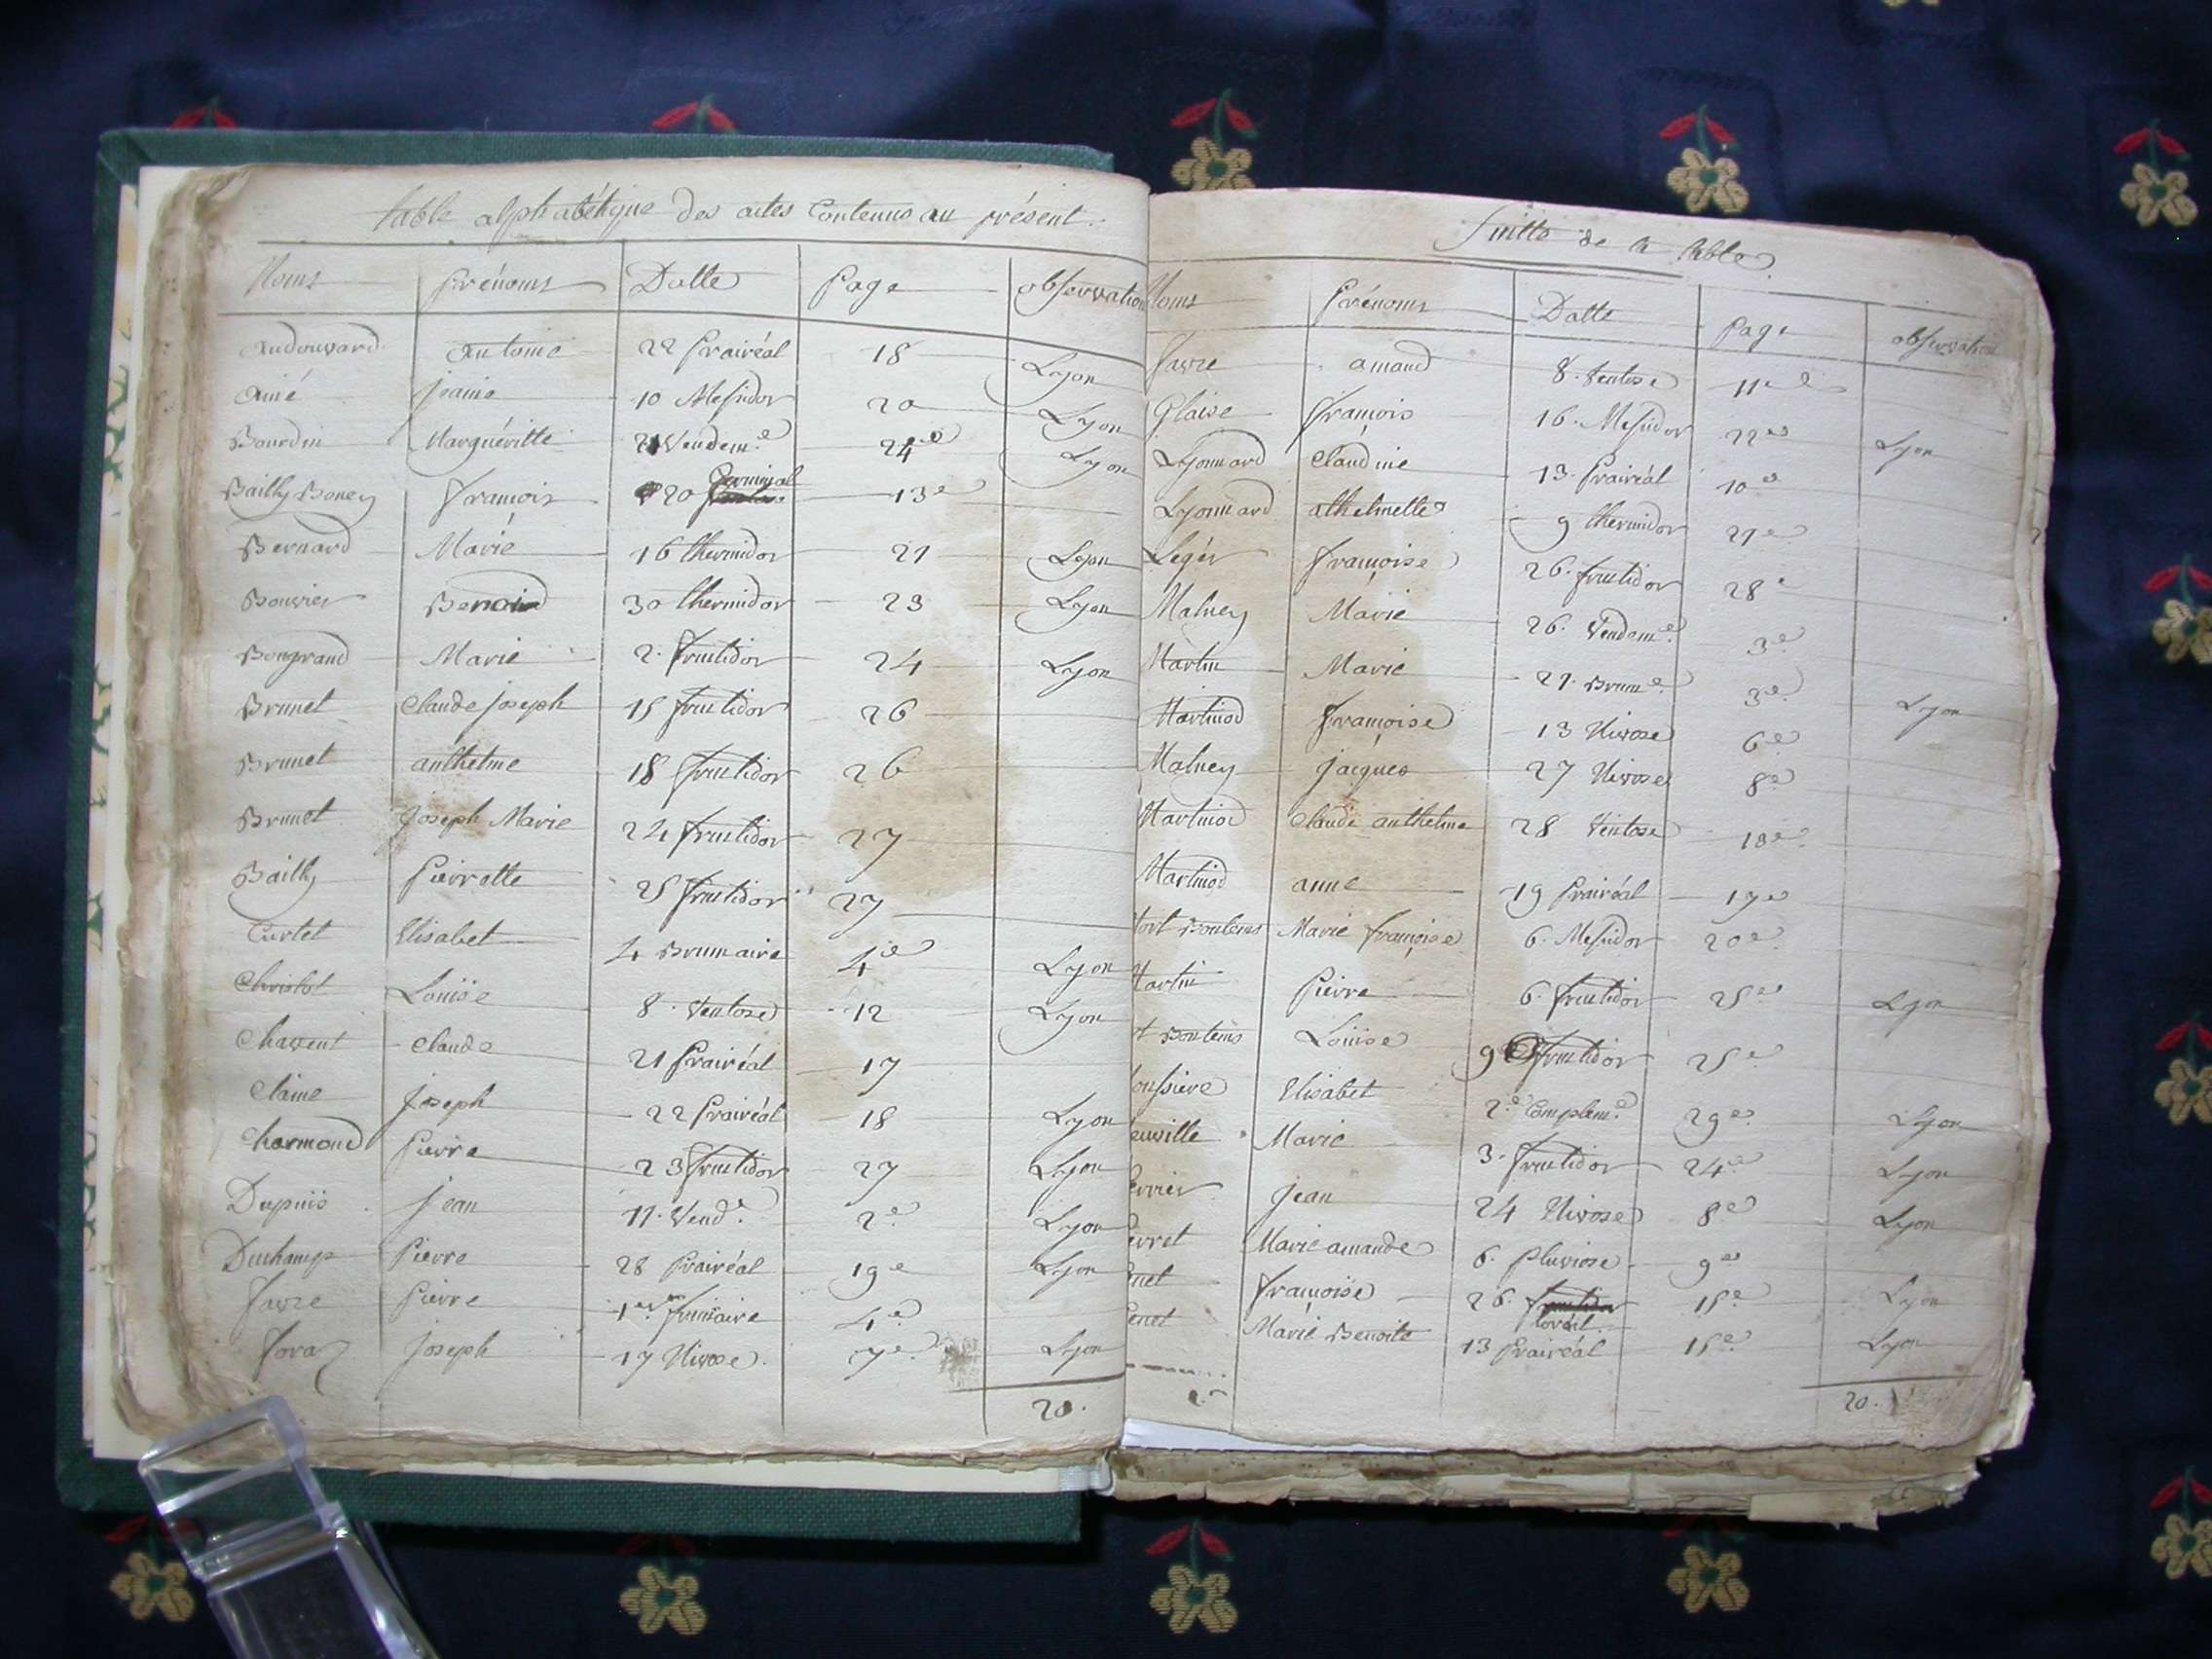 table alphabétique des actes Contenus au présent.
Noms Prénoms Datte Page observation
Audouvard antoine 22 Prairéal 18 Lyon
Ainé jeanne 10 Mesidor 20 Lyon
Bourdin Marguéritte 21 Vendem.e 24e Lyon
Bailly Boney françois 20 Germinal 13e
Bernard Marie 16 thermidor 21 Lyon
Bouvier Benoit 30 thermidor 23 Lyon
Bongrand Marie 2. fructidor 24 Lyon
Brunet Claude joseph 15 fructidor 26
Brunet anthelme 18 fructidor 26
Brunet joseph Marie 24 fructidor 27
Bailly Pierrette 25 fructidor 27
Curtet Elisabet 4 Brumaire 4e Lyon
Christot Louise 8. Ventose 12 Lyon
Chavent Claude 21 Prairéal 17
Claine joseph 22 Prairéal 18 Lyon
Charmond Pierre 23 fructidor 27 Lyon
Dupuis jean 11. Vend.e 2e Lyon
Duchamp Pierre 28 Prairéal 19e Lyon
favre Pierre 1er frimaire 4e
foraz joseph 17 Nivose. 7e Lyon
20.
Suitte de la table
Noms Prénoms Datte Page observation
favre amand 8. Ventose 11e
Glaise françois 16. Mesidor 22e Lyon
Lyonnard Claudine 13. Prairéal 10e
Lyonnard athelmette 9 thermidor 21e
Legér françoise 26. fructidor 28e
Malney Marie 26. Vendem.e 3e
Martin Marie 21. Brum.e 3e Lyon
Martinod françoise 13 Nivose 6e
Malney jacques 27 Nivose 8e
Martinod Claude anthelme 28 Ventose 13e
Martinod anne 19 Prairéal 17e
Mort Boutems Marie françoise 6. Mesidor 20e
Martin Pierre 6. fructidor 25e Lyon
t Boutems Louise 9 fructidor 25e
oussiere Elisabet 2.e Complem.e 29e Lyon
euville Marie 3. fructidor 24e Lyon
errier jean 24 Nivose 8e Lyon
erret Marie amande 6. Pluviose 9e
net françoise 26. floréal 15e Lyon
enet Marie Benoite 13 Prairéal 15e Lyon
20.